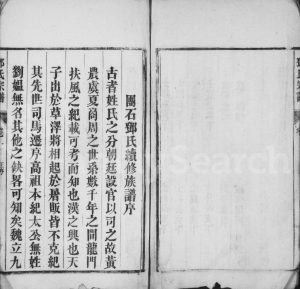 團石鄧氏續修族譜序
古者姓氏之分朝廷設官以司之故黃
農虞夏商周之世系數千年之間龍門
扶風之紀載可考而知也漢之興也天
子出於草澤將相起於屠販皆不克紀
其先世司馬遷序高祖本紀太公無姓
劉媼無名其他之缺畧可知矣魏立九
鄧氏宗譜